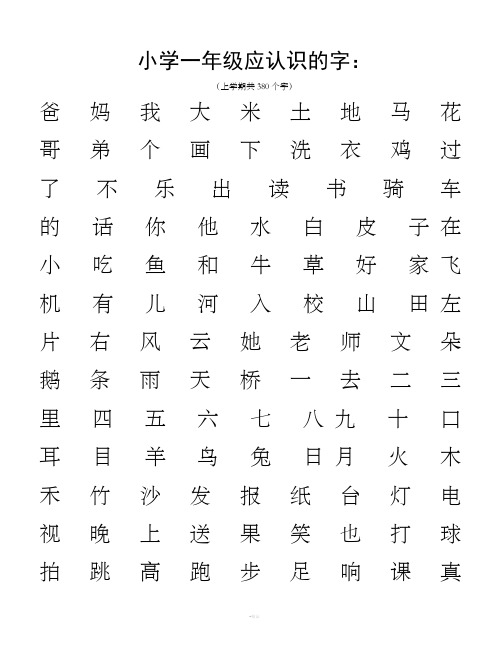 小学一年级应认识的字：
（上学期共380个字）
爸 妈 我 大 米 土 地 马 花
哥 弟 个 画 下 洗 衣 鸡 过
了 不 乐 出 读 书 骑 车
的 话 你 他 水 白 皮 子 在
小 吃 鱼 和 牛 草 好 家 飞
机 有 儿 河 入 校 山 田 左
片 右 风 云 她 老 师 文 朵
鹅 条 雨 天 桥 一 去 二 三
里 四 五 六 七 八 九 十 口
耳 目 羊 鸟 兔 日 月 火 木
禾 竹 沙 发 报 纸 台 灯 电
视 晚 上 送 果 笑 也 打 球
拍 跳 高 跑 步 足 响 课 真